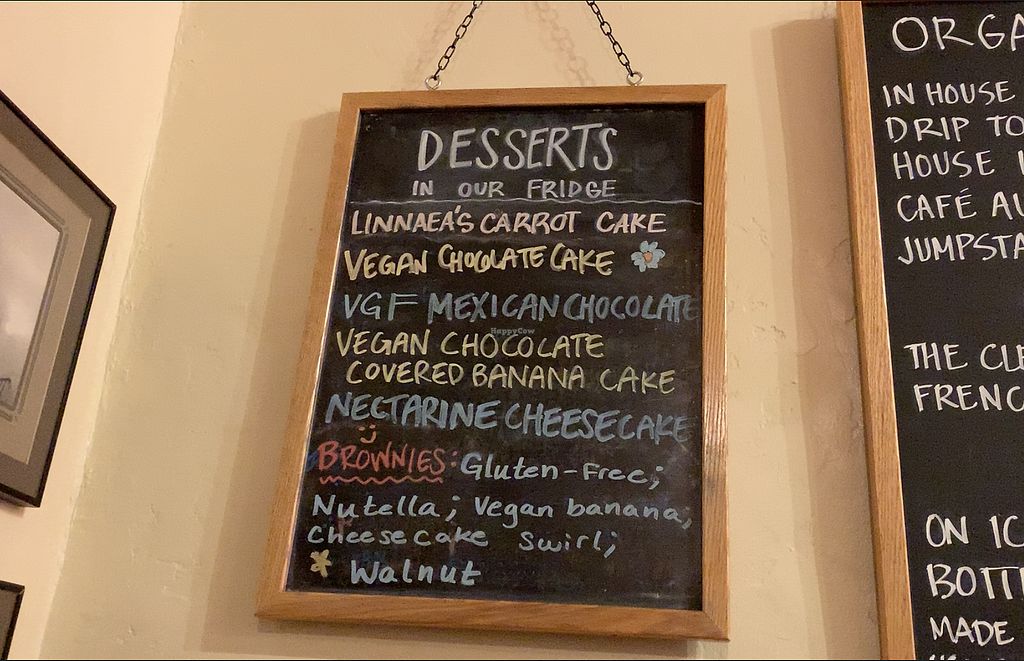 DESSERTS
IN OUR FRIDGE
LINNAEA'S CARROT CAKE
VEGAN CHOCOLATE CAKE
VGF MEXICAN CHOCOLATE
VEGAN CHOCOLATE
COVERED BANANA CAKE
NECTARINE CHEESECAKE
BROWNIES: Gluten-Free;
Nutella; Vegan banana;
Cheesecake Swirl;
Walnut
HappyCow
ORGA
IN HOUSE
DRIP TO
HOUSE
CAFÉ AU
JUMPSTA
THE CLE
FRENC
ON IC
BOTT
MADE